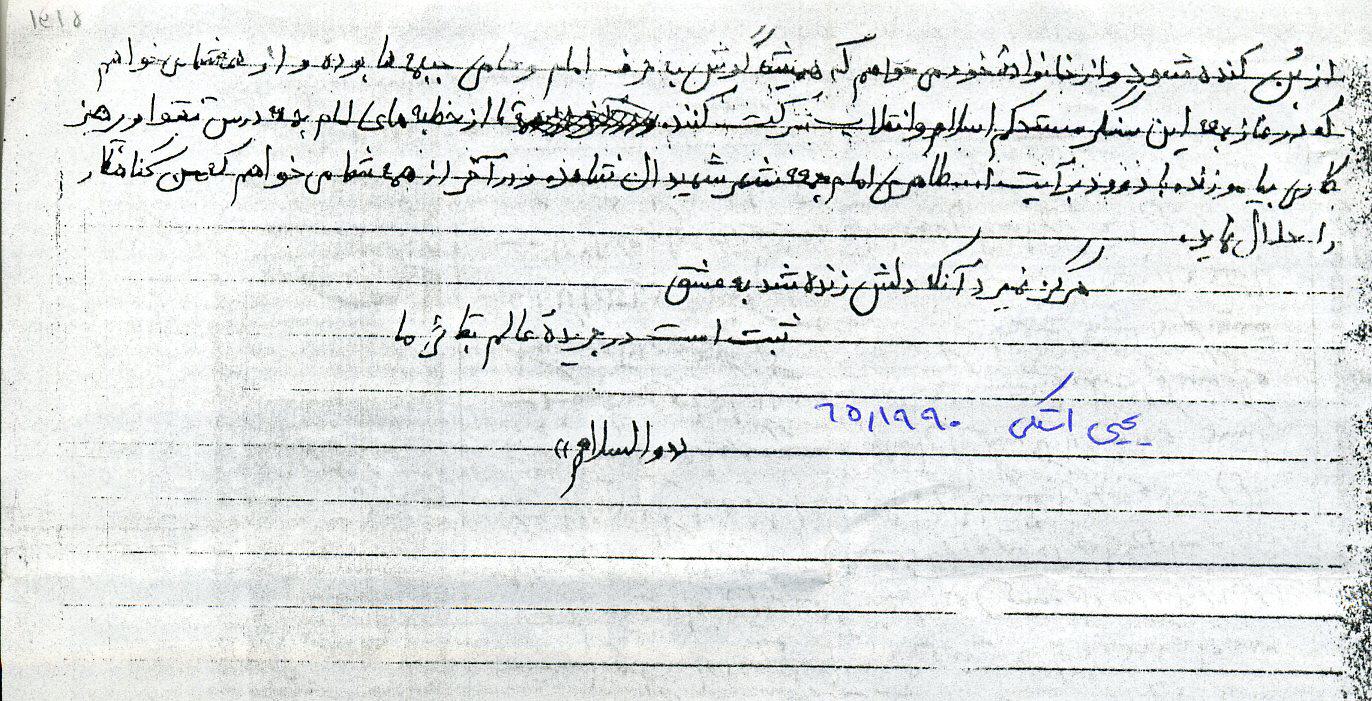 ۱۶۱۵
از بُن کنده شود و از خانواده خود می خواهم که همیشه گوش به حرف امام و حامی جبهه ها بوده و از همه شما می خواهم
که در نماز جمعه این سنگر مستحکم اسلام و انقلاب شرکت کنند تا از خطبه های امام جمعه درس تقوا و پرهیز
کاری بیاموزند با درود بر آیت ا... طاهری امام جمعه شهر شهیدان و در آخر از همه شما می خواهم که من گناهکار
را حلال نمایید.
هرگز نمیرد آنکه دلش زنده شد به عشق
ثبت است در جریدهٔ عالم بقای ما
یحیی ۶۵٫۱۹۹۰
«والسلام»